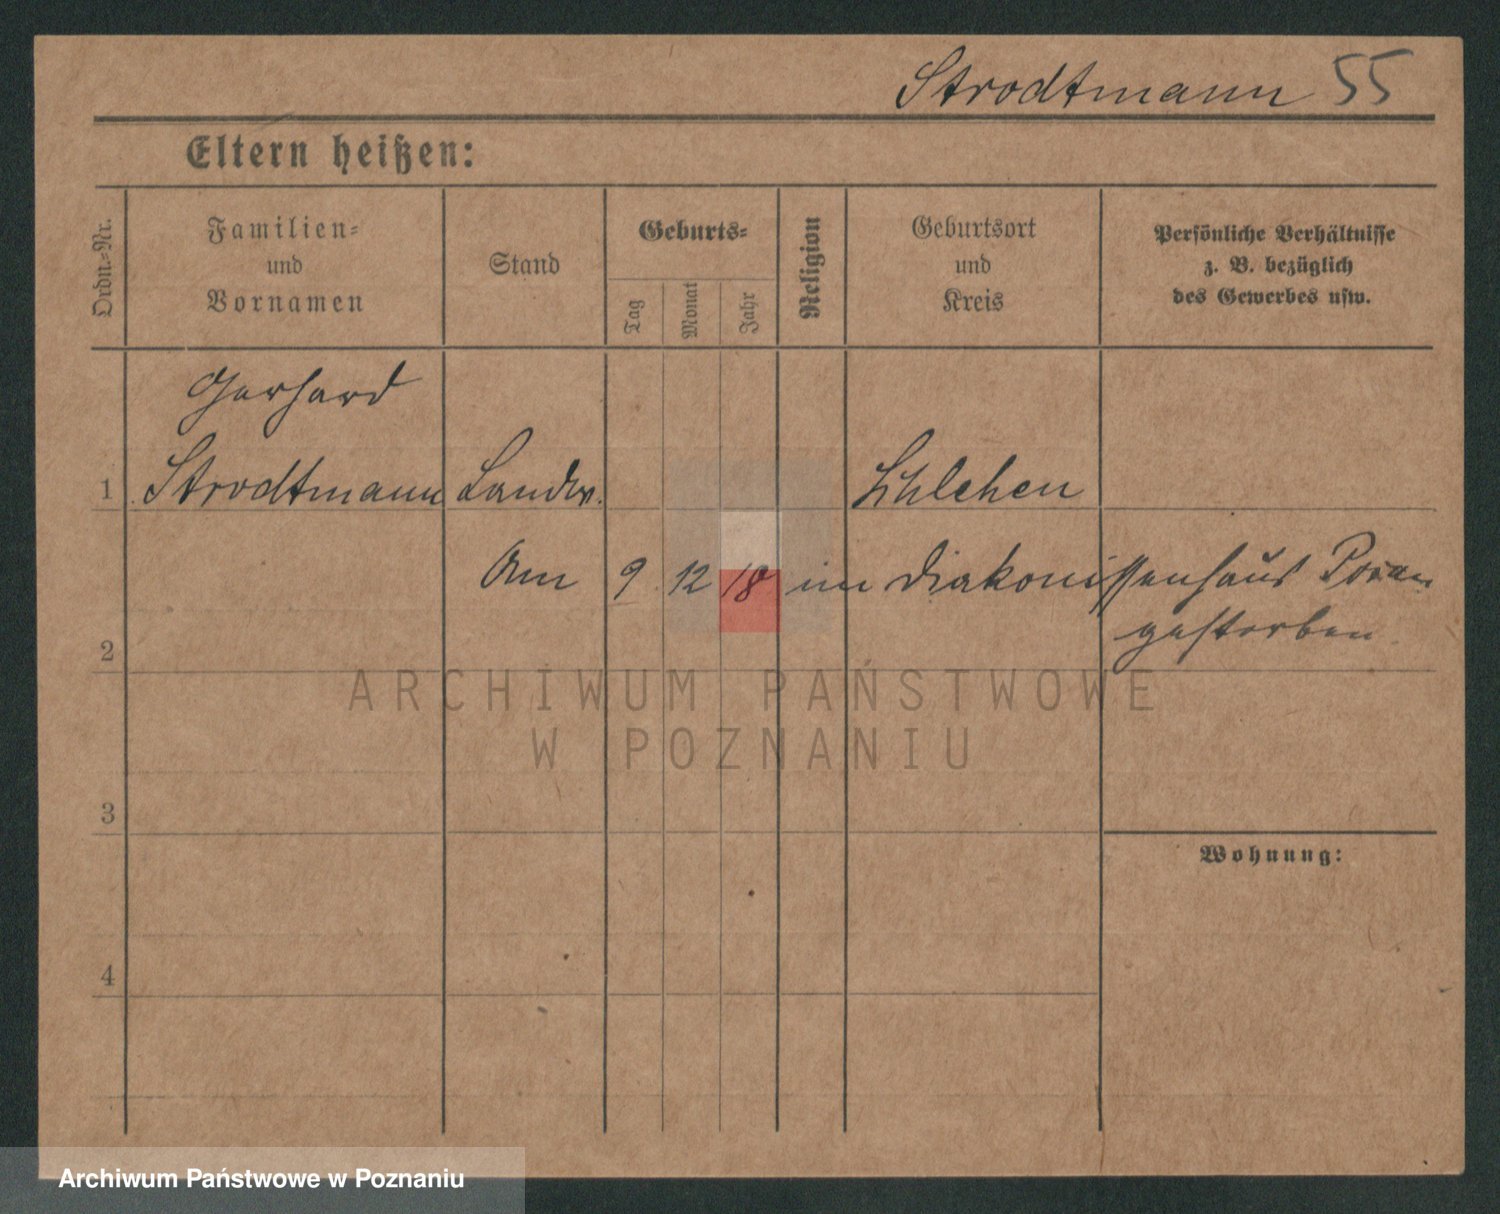 Strodtmann 55
Eltern heißen:
Ordn.-Nr.
Familien-
und
Vornamen
Stand
Geburts-
Tag
Monat
Jahr
Religion
Geburtsort
und
Kreis
Persönliche Verhältnisse
z. B. bezüglich
des Gewerbes usw.
Gerhard
1 Strodtmann Landw.
Am 9 12 18 im Diakonissenhaus
gestorben
2
ARCHIWUM PAŃSTWOWE
W POZNANIU
3
Wohnung:
4
Archiwum Państwowe w Poznaniu